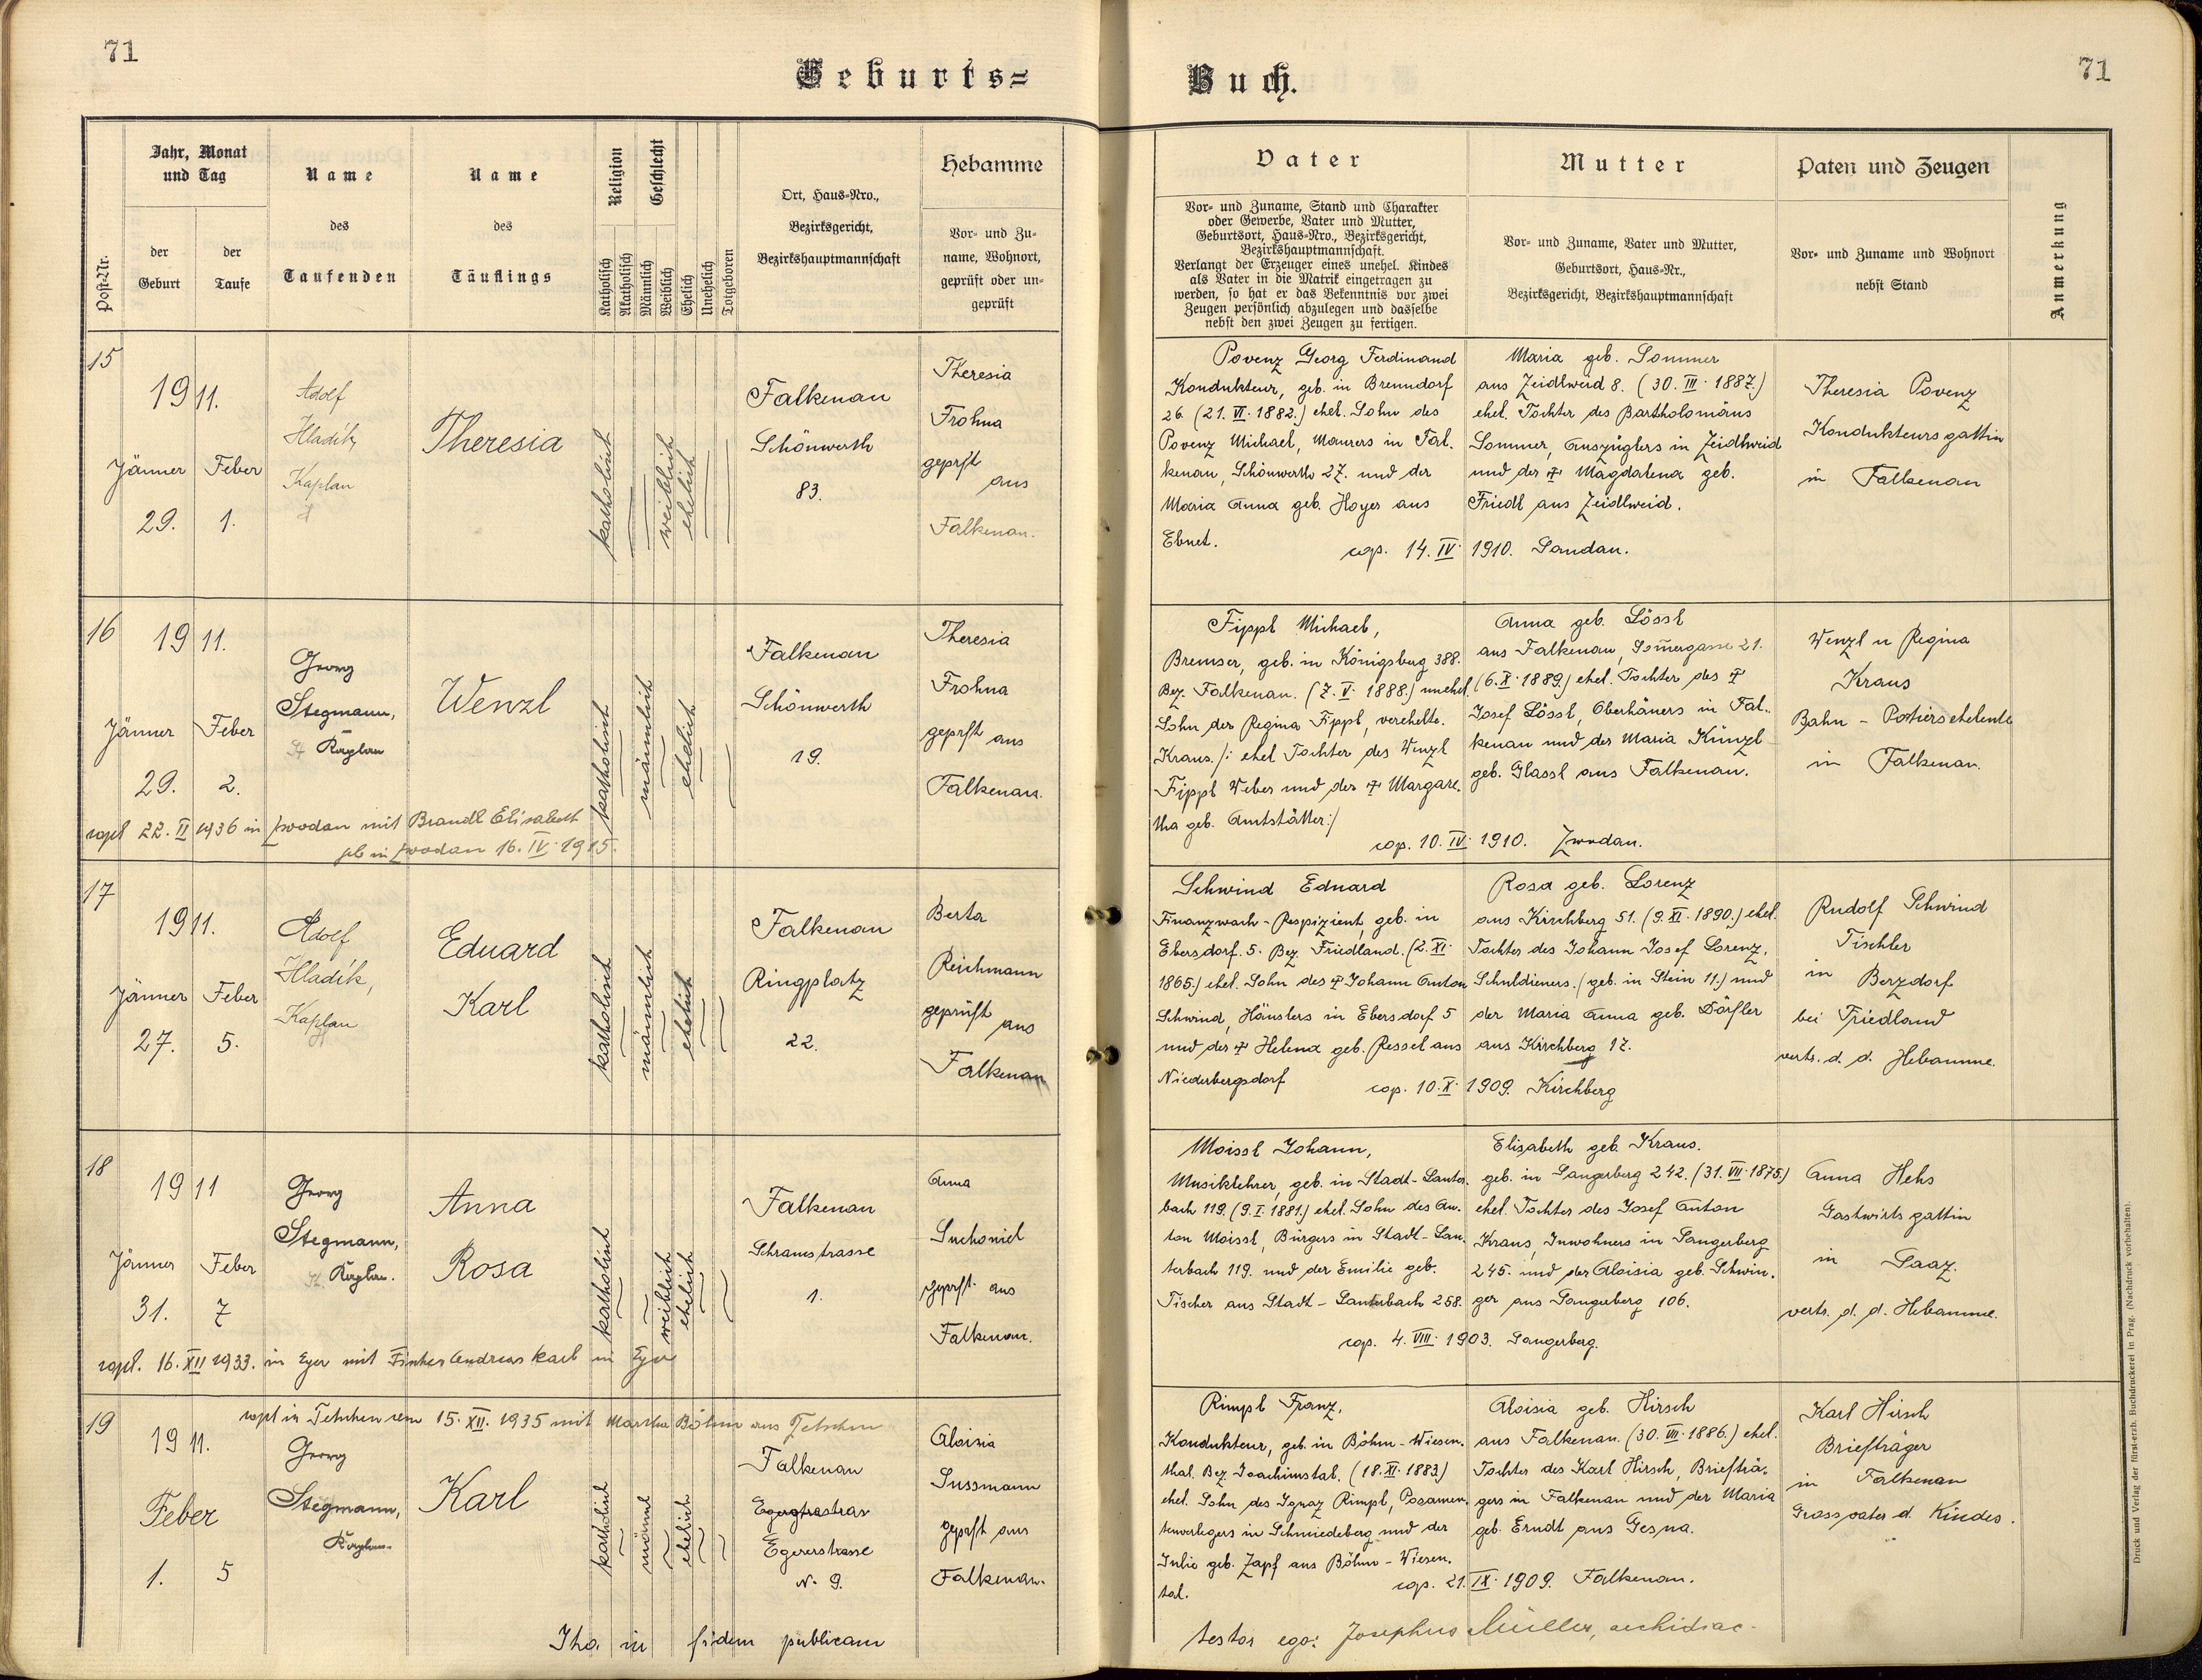 71
Geburts=
Buch.
71
Post-Nr.
Jahr, Monat
und Tag
der
Geburt
der
Taufe
Name
des
Taufenden
Name
des
Täuflings
Religion
Geschlecht
Katholisch
Akatholisch
Männlich
Weiblich
Ehelich
Unehelich
Totgeboren
Ort, Haus-Nro.,
Bezirksgericht,
Bezirkshauptmannschaft
Hebamme
Vor- und Zu-
name, Wohnort,
geprüft oder un-
geprüft
Vater
Vor- und Zuname, Stand und Charakter
oder Gewerbe, Vater und Mutter,
Geburtsort, Haus-Nro., Bezirksgericht,
Bezirkshauptmannschaft.
Verlangt der Erzeuger eines unehel. Kindes
als Vater in die Matrik eingetragen zu
werden, so hat er das Bekenntnis vor zwei
Zeugen persönlich abzulegen und dasselbe
nebst den zwei Zeugen zu fertigen.
Mutter
Vor- und Zuname, Vater und Mutter,
Geburtsort, Haus-Nr.,
Bezirksgericht, Bezirkshauptmannschaft
Paten und Zeugen
Vor- und Zuname und Wohnort
nebst Stand
Anmerkung
15
1911.
Jänner Feber
29. 1.
Adolf
Hladík
Kaplan
Theresia
katholisch
weiblich
ehelich
Falkenau
Schönwerth
83.
Theresia
Frohna
geprft
aus
Falkenau.
Povenz Georg Ferdinand
Kondukteur, geb. in Brenndorf
26. (21. VI. 1882.) ehel. Sohn des
Povenz Michael, Maurers in Fal-
kenau, Schönwerth 27. und der
Maria Anna geb. Hoyer aus
Ebnet.
Maria geb. Sommer
aus Zeidlweid 8. (30. III. 1887.)
ehel. Tochter des Bartholomäus
Sommer, Auszüglers in Zeidlweid
und der † Magdalena geb.
Friedl aus Zeidlweid.
cop. 14. IV. 1910. Sandau.
Theresia Povenz
Kondukteursgattin
in Falkenau
16
1911.
Jänner Feber
29. 2.
Georg
Stegmann,
Kaplan
Wenzl
katholisch
männlich
ehelich
Falkenau
Schönwerth
19.
Theresia
Frohna
geprft aus
Falkenau.
copl 22. II 1936 in Zwodau mit Brandl Elisabeth
geb in Zwodau 16. IV. 1915.
Fippl Michael,
Bremser, geb. in Königsberg 388.
Bez. Falkenau. (7. V. 1888.) unehel.
Sohn der Regina Fippl, verehelte.
Kraus. /: ehel Tochter des Wenzl
Fippl Weber und der † Margare-
tha geb. Amtstätter:/
Anna geb. Lössl
aus Falkenau, Som̄ergasse 21.
(6. X. 1889.) ehel. Tochter des †
Josef Lössl, Oberhäuers in Fal-
kenau und der Maria Künzl
geb. Glassl aus Falkenau.
cop. 10. IV. 1910. Zwodau.
Wenzl u Regina
Kraus
Bahn - Portiersehelente
in Falkenau.
17
1911.
Jänner Feber
27. 5.
Adolf
Hladík,
Kaplan
Eduard
Karl
katholisch
männlich
ehelich
Falkenau
Ringplatz
22.
Berta
Reichmann
geprüft aus
Falkenau
Schwind Eduard
Finanzwach-Respizient, geb. in
Ebersdorf. 5. Bez. Friedland. (2. XI.
1865.) ehel. Sohn des † Johann Anton
Schwind, Häuslers in Ebersdorf 5
und der † Helena geb. Ressel aus
Niederbergsdorf
Rosa geb. Lorenz
aus Kirchberg 51. (9. XI. 1890.) ehel.
Tochter des Johann Josef Lorenz,
Schuldieners. (geb. in Stein 11.) und
der Maria Anna geb. Dörfler
aus Kirchberg 17.
cop. 10. X. 1909. Kirchberg
Rudolf Schwind
Tischler
in Berzdorf
bei Friedland
vertr. d. d. Hebamme.
18
1911
Jänner Feber
31. 7
Georg
Stegmann,
Kaplan.
Anna
Rosa
katholisch
weiblich
ehelich
Falkenau
Schramstrasse
1.
Anna
Suchomel
geprft. aus
Falkenau.
copl. 16. XII 1933. in Eger mit Fischer Andreas Karl in Eger
Moissl Johann,
Musiklehrer, geb. in Stadt-Lauter-
bach 119. (9. I. 1881.) ehel. Sohn des An-
ton Moissl, Bürgers in Stadt-Lau-
terbach 119. und der Emilie geb.
Tischer aus Stadt-Lauterbach 258.
Elisabeth geb. Kraus.
geb. in Sangerberg 242. (31. VII. 1875.)
ehel. Tochter des Josef Anton
Kraus, Inwohners in Sangerberg
245. und der Aloisia geb. Schwin-
ger aus Sangerberg 106.
cop. 4. VIII. 1903. Sangerberg.
Anna Hehs
Gastwirtsgattin
in Saaz.
vertr. d. d. Hebamme.
19
copl in Tetschen 15. XII. 1935 mit Martha Böhm aus Tetschen
1911.
Feber
1. 5
Georg
Stegmann,
Kaplan.
Karl
katholisch
männl
ehelich
Falkenau
Egererstrasse
N. 9.
Aloisia
Sussmann
geprft aus
Falkenau.
Rimpl Franz,
Kondukteur, geb. in Böhm-Wiesen-
thal. Bez. Joachimstal. (18. XI. 1883.)
ehel. Sohn des Ignaz Rimpl, Posamen-
tenverlegers in Schmiedeberg und der
Julie geb. Zapf aus Böhm-Wiesen-
tal.
Aloisia geb. Hirsch
aus Falkenau. (30. VII. 1886.) ehel.
Tochter des Karl Hirsch, Briefträ-
gers in Falkenau und der Maria
geb. Erndt aus Gesna.
cop. 21. IX. 1909. Falkenau.
Karl Hirsch
Briefträger
in Falkenau
Grossvater d. Kindes.
Ita in fidem publicam
testor ego: Josephus Müller, archidiac.
Druck und Verlag der fürst-erzb. Buchdruckerei in Prag. (Nachdruck vorbehalten).